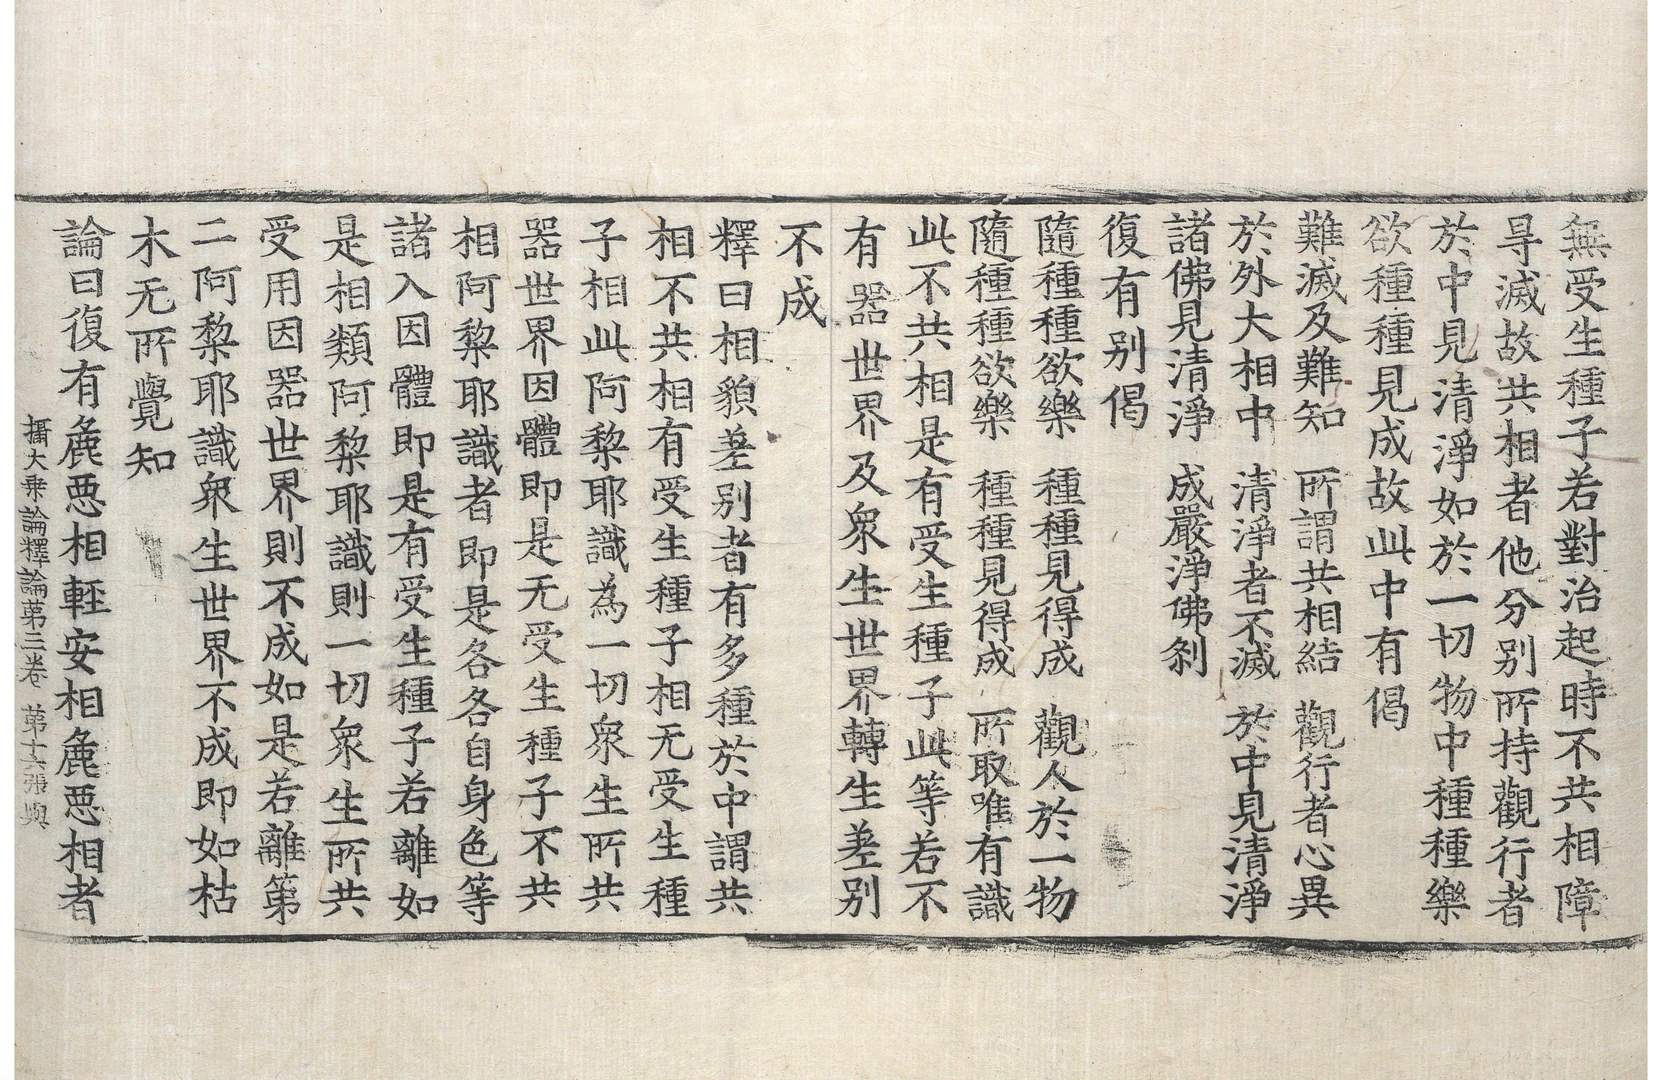 無受生種子若對治起時不共相障
㝵滅故共相者他分別所持觀行者
於中見清淨如於一切物中種種樂
欲種種見成故此中有偈
難滅及難知　所謂共相結　觀行者心異
於外大相中　清淨者不滅　於中見清淨
諸佛見清淨　成嚴淨佛剎
復有別偈
隨種種欲樂　種種見得成　觀人於一物
隨種種欲樂　種種見得成　所取唯有識
此不共相是有受生種子此等若不
有器世界及衆生世界轉生差別
不成
釋曰相貌差別者有多種於中謂共
相不共相有受生種子相无受生種
子相此阿棃耶識為一切衆生所共
器世界因體即是无受生種子不共
相阿棃耶識者即是各各自身色等
諸入因體即是有受生種子若離如
是相類阿棃耶識則一切衆生所共
受用因器世界則不成如是若離第
二阿棃耶識衆生世界不成即如枯
木无所覺知
論曰復有麁惡相輕安相麁惡相者
攝大乗論釋論苐三卷　苐十六張　與